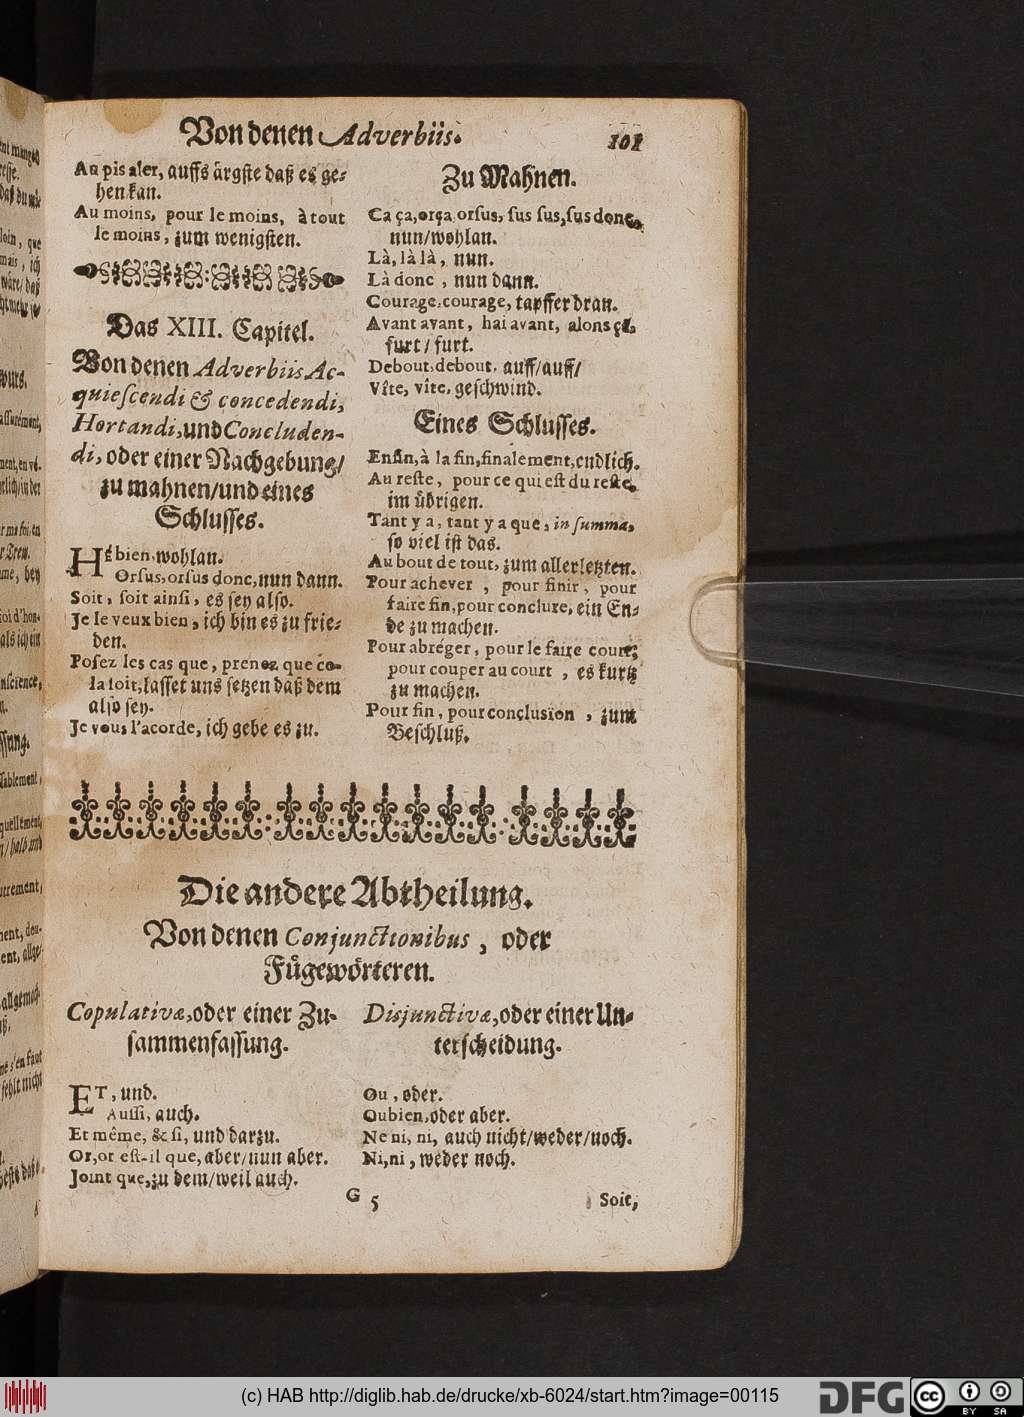 Von denen Adverbiis. 101
Au pis aler, auffs ärgste daß es ge-
hen kan.
Au moins, pour le moins, à tout
le moins, zum wenigsten.
Das XIII. Capitel.
Von denen Adverbiis Ac-
quiescendi & concedendi,
Hortandi, und Concluden-
di, oder einer Nachgebung/
zu mahnen/und eines
Schlusses.
HÉ bien, wohlan.
Orsus, orsus donc, nun dann.
Soit, soit ainsi, es sey also.
Je le veux bien, ich bin es zu frie-
den.
Posez les cas que, prenez que ce-
la soit, lasset uns setzen daß dem
also sey.
Je vous l'acorde, ich gebe es zu.
Zu Mahnen.
Ca ça, orça orsus, sus sus, sus donc,
nun/wohlan.
Là, là là, nun.
Là donc, nun dann.
Courage, courage, tapffer dran.
Avant avant, hai avant, alons ça,
furt/furt.
Debout, debout, auff/auff/
Vîte, vîte, geschwind.
Eines Schlusses.
Enfin, à la fin, finalement, endlich.
Au reste, pour ce qui est du reste,
im übrigen.
Tant y a, tant y a que, in summa,
so viel ist das.
Au bout de tout, zum allerletzten.
Pour achever, pour finir, pour
faire fin, pour conclure, ein En-
de zu machen.
Pour abréger, pour le faire court,
pour couper au court, es kurtz
zu machen.
Pour fin, pour conclusion, zum
Beschluß.
Die andere Abtheilung.
Von denen Conjunctionibus, oder
Fügewörteren.
Copulativæ, oder einer Zu-
sammenfassung.
ET, und.
Aussi, auch.
Et même, & si, und darzu.
Or, or est-il que, aber/nun aber.
Joint que, zu dem/weil auch.
Disjunctivæ, oder einer Un-
terscheidung.
Ou, oder.
Oubien, oder aber.
Ne ni, ni, auch nicht/weder/noch.
Ni, ni, weder noch.
G 5 Soit,
(c) HAB http://diglib.hab.de/drucke/xb-6024/start.htm?image=00115
DFG
cc BY SA